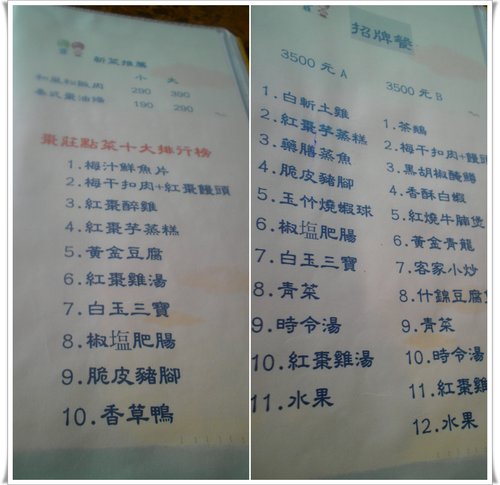 新菜推薦
小 大
和風松阪肉 290 390
泰式醬油燒 190 290
棗莊點菜十大排行榜
1.梅汁鮮魚片
2.梅干扣肉+紅棗饅頭
3.紅棗醉雞
4.紅棗芋蒸糕
5.黃金豆腐
6.紅棗雞湯
7.白玉三寶
8.椒塩肥腸
9.脆皮豬腳
10.香草鴨
招牌餐
3500 元 A
1.白斬土雞
2.紅棗芋蒸糕
3.藥膳蒸魚
4.脆皮豬腳
5.玉竹燒蝦球
6.椒塩肥腸
7.白玉三寶
8.青菜
9.時令湯
10.紅棗雞湯
11.水果
3500 元 B
1.茶鵝
2.梅干扣肉+饅
3.黑胡椒醃鱒
4.香酥白蝦
5.紅燒牛腩煲
6.黃金青龍
7.客家小炒
8.什錦豆腐
9.青菜
10.時令湯
11.紅棗雞
12.水果